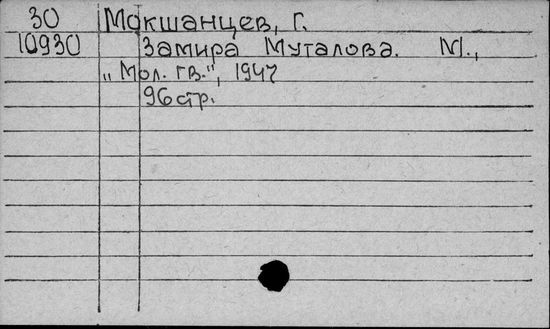 30 Мокшанцев, Г.
10930 Замира Муталова. М.,
„Мол. гв.", 1947
96 стр.